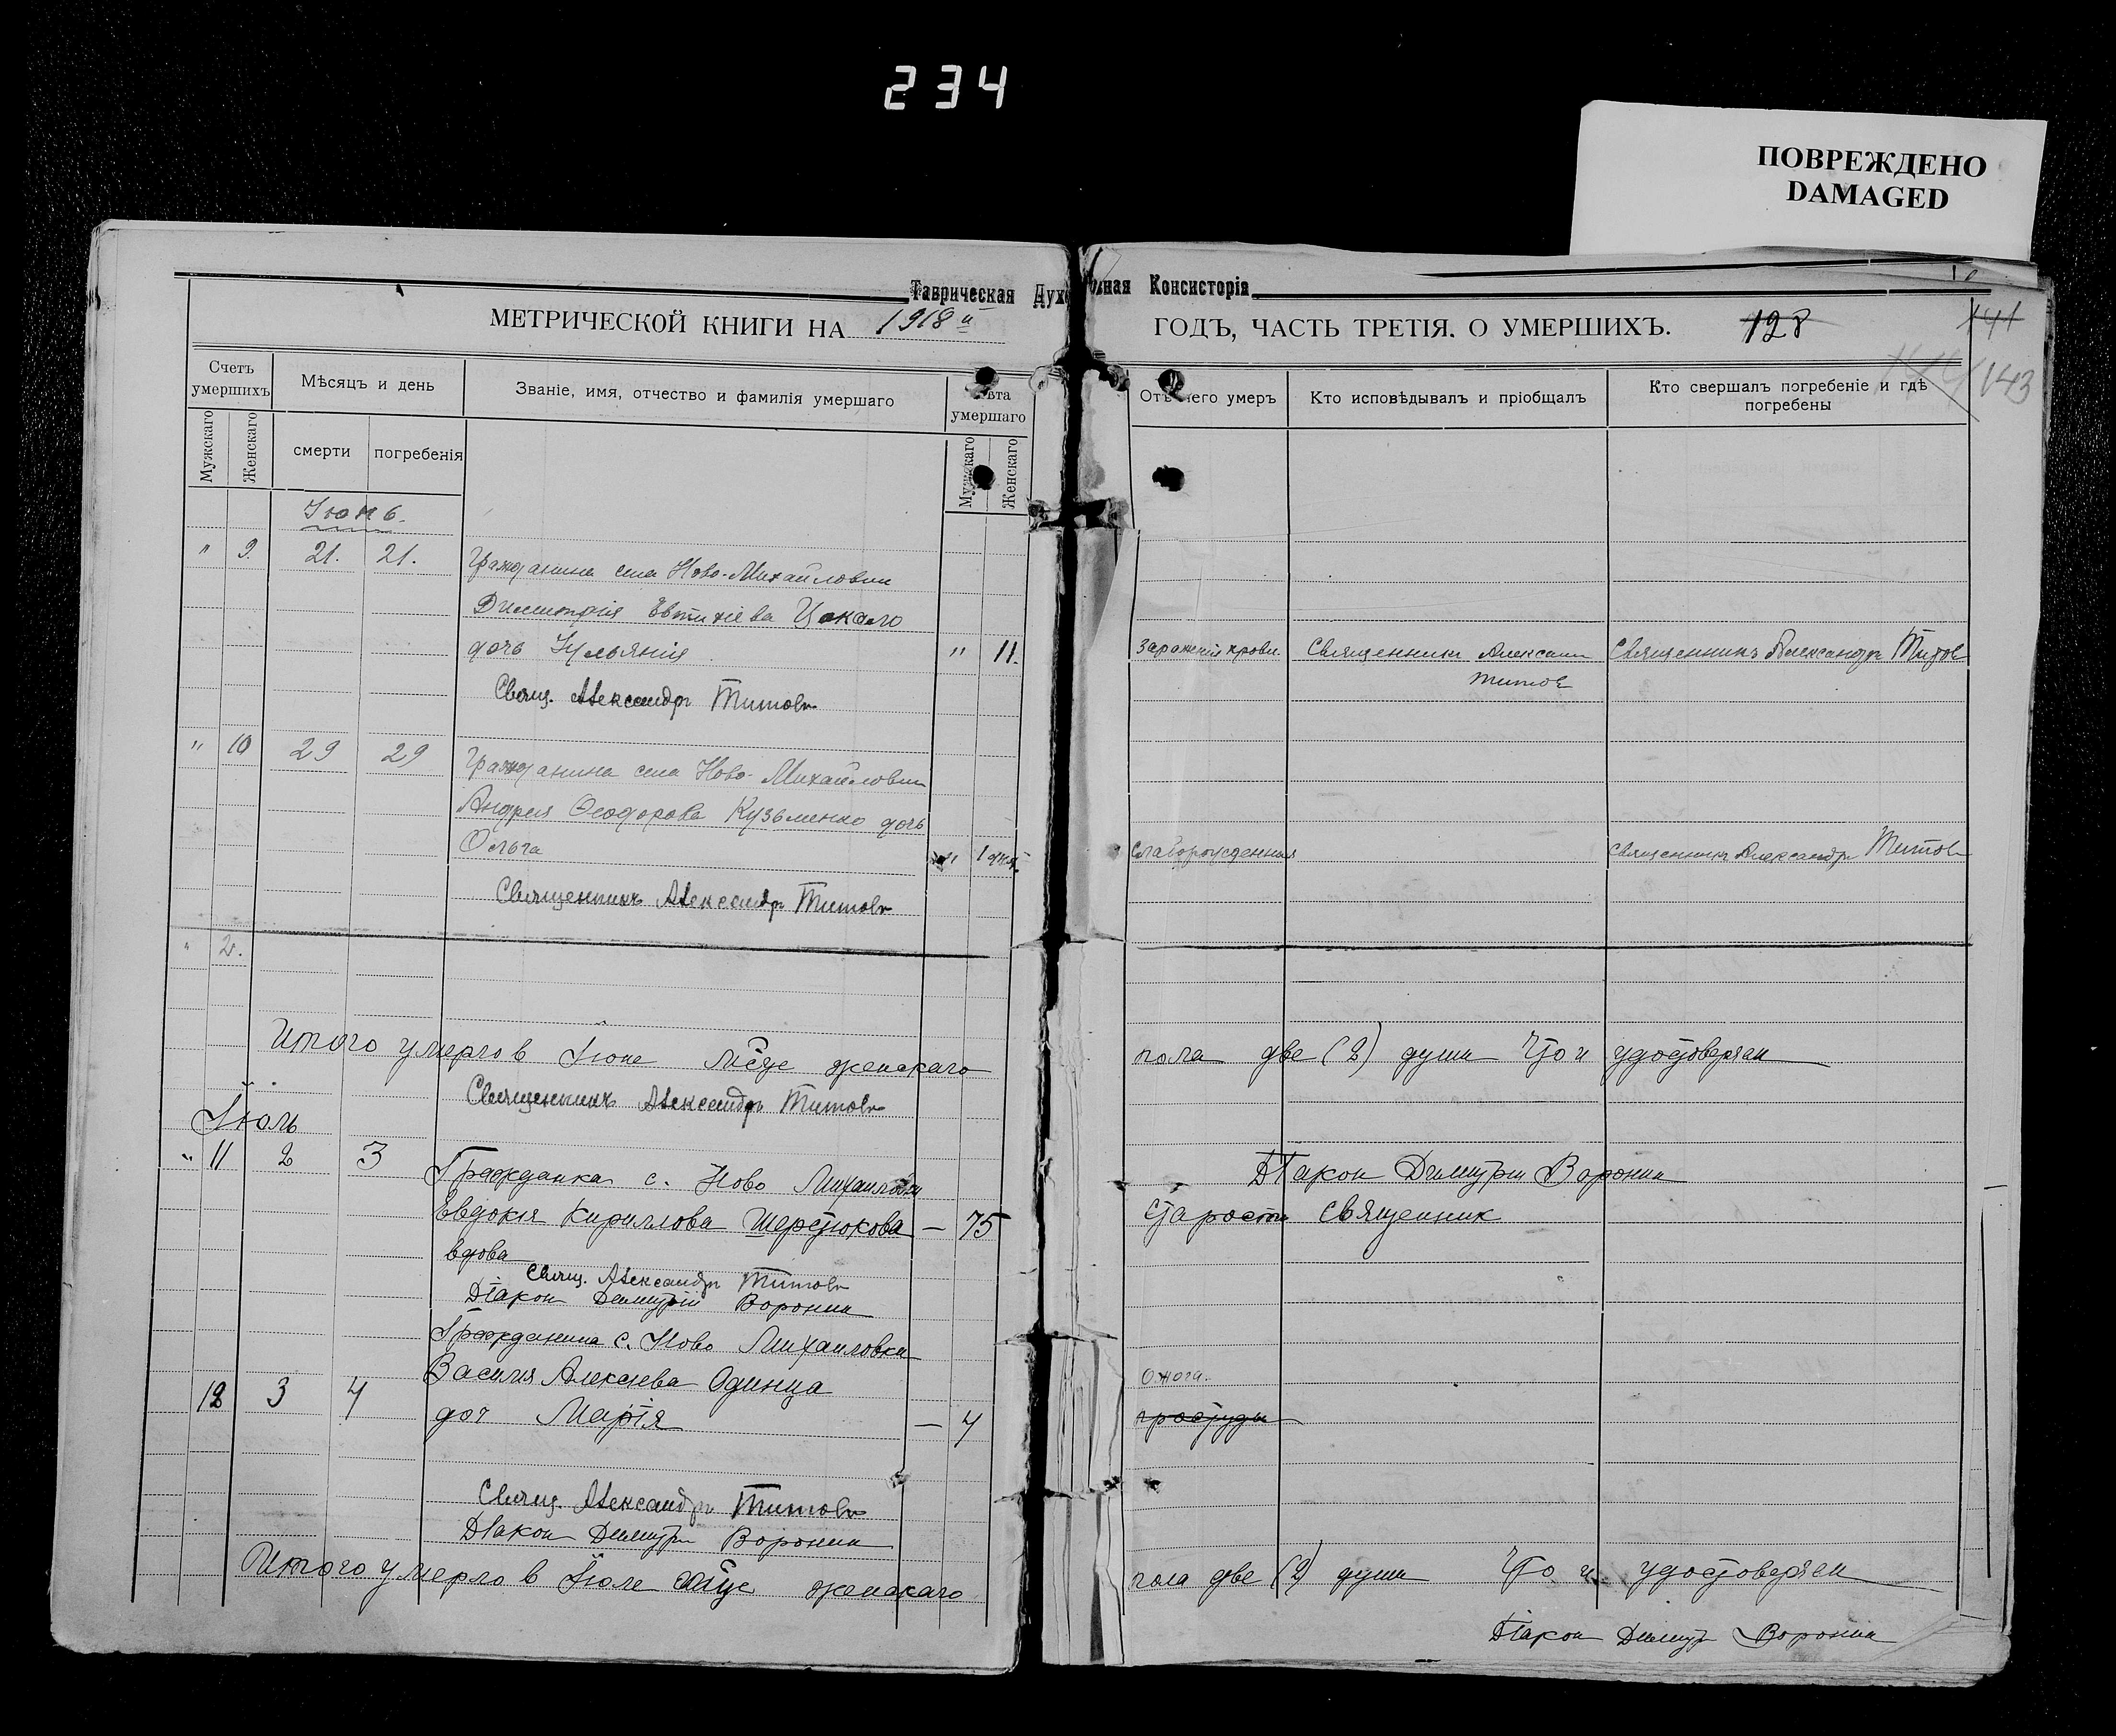 234
ПОВРЕЖДЕНО
DAMAGED
Таврическая Духовная Консисторія
МЕТРИЧЕСКОЙ КНИГИ НА 1918й ГОДЪ, ЧАСТЬ ТРЕТІЯ. О УМЕРШИХЪ. 128
141
143
Счетъ умершихъ
Мѣсяцъ и день
Званіе, имя, отчество и фамилія умершаго
Лѣта умершаго
Отъ чего умеръ
Кто исповѣдывалъ и пріобщалъ
Кто свершалъ погребеніе и гдѣ погребены
Мужскаго
Женскаго
смерти
погребенія
Мужскаго
Женскаго
Іюнь.
" 9. 21. 21. Гражданина села Ново-Михайловки
Димитрія Евтихіева Цокало
дочь Іульянія " 11. Зараженія крови Священникъ Александръ Титовъ Священникъ Александръ Титовъ
Свящ. Александръ Титовъ
" 10 29 29 Гражданина села Ново-Михайловки
Андрея Ѳеодорова Кузьменко дочь
Ольга " 1 Слаборожденная Священникъ Александръ Титовъ
Священникъ Александръ Титовъ
" 2.
Итого умерло в Іюне м̃це женскаго пола две (2) души Что и удостоверяем
Священникъ Александръ Титовъ
Діакон Димитрий Воронин
Іюль
" 11 2 3 Гражданка с. Ново Михаиловки
Евдокія Кириллова Шерстюкова — 75 Старости Священник
вдова
Свящ. Александръ Титовъ
Діакон Димитрий Воронин
Гражданина с. Ново Михаиловки
Василия Алексеева Одинца Ожога.
12 3 4 доч Марія — 4 простуды
Свящ. Александръ Титовъ
Діакон Димитрий Воронин
Итого умерло в Іюле м̃це женскаго пола две (2) души Что и удостоверяем
Діакон Димитр Воронин